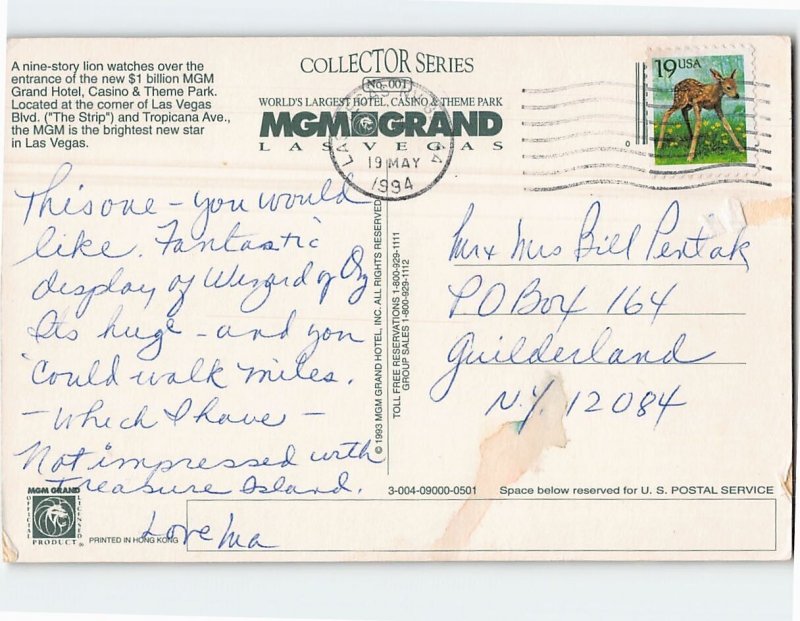 A nine-story lion watches over the
entrance of the new $1 billion MGM
Grand Hotel, Casino & Theme Park.
Located at the corner of Las Vegas
Blvd. ("The Strip") and Tropicana Ave.,
the MGM is the brightest new star
in Las Vegas.
COLLECTOR SERIES
No. 001
WORLD'S LARGEST HOTEL, CASINO & THEME PARK
MGM GRAND
LAS VEGAS
19 MAY
1994
19 USA
This one - you would
like. Fantastic
display of Wizard of Oz
Its huge - and you
could walk miles.
- which I have -
Not impressed with
Treasure Island.
Love Ma
© 1993 MGM GRAND HOTEL, INC. ALL RIGHTS RESERVED
TOLL FREE RESERVATIONS 1-800-929-1111
GROUP SALES 1-800-929-1112
Mr + Mrs Bill Pentak
P.O Box 164
Guilderland
N.Y. 12084
MGM GRAND
OFFICIAL
LICENSED
PRODUCT
PRINTED IN HONG KONG
3-004-09000-0501
Space below reserved for U. S. POSTAL SERVICE